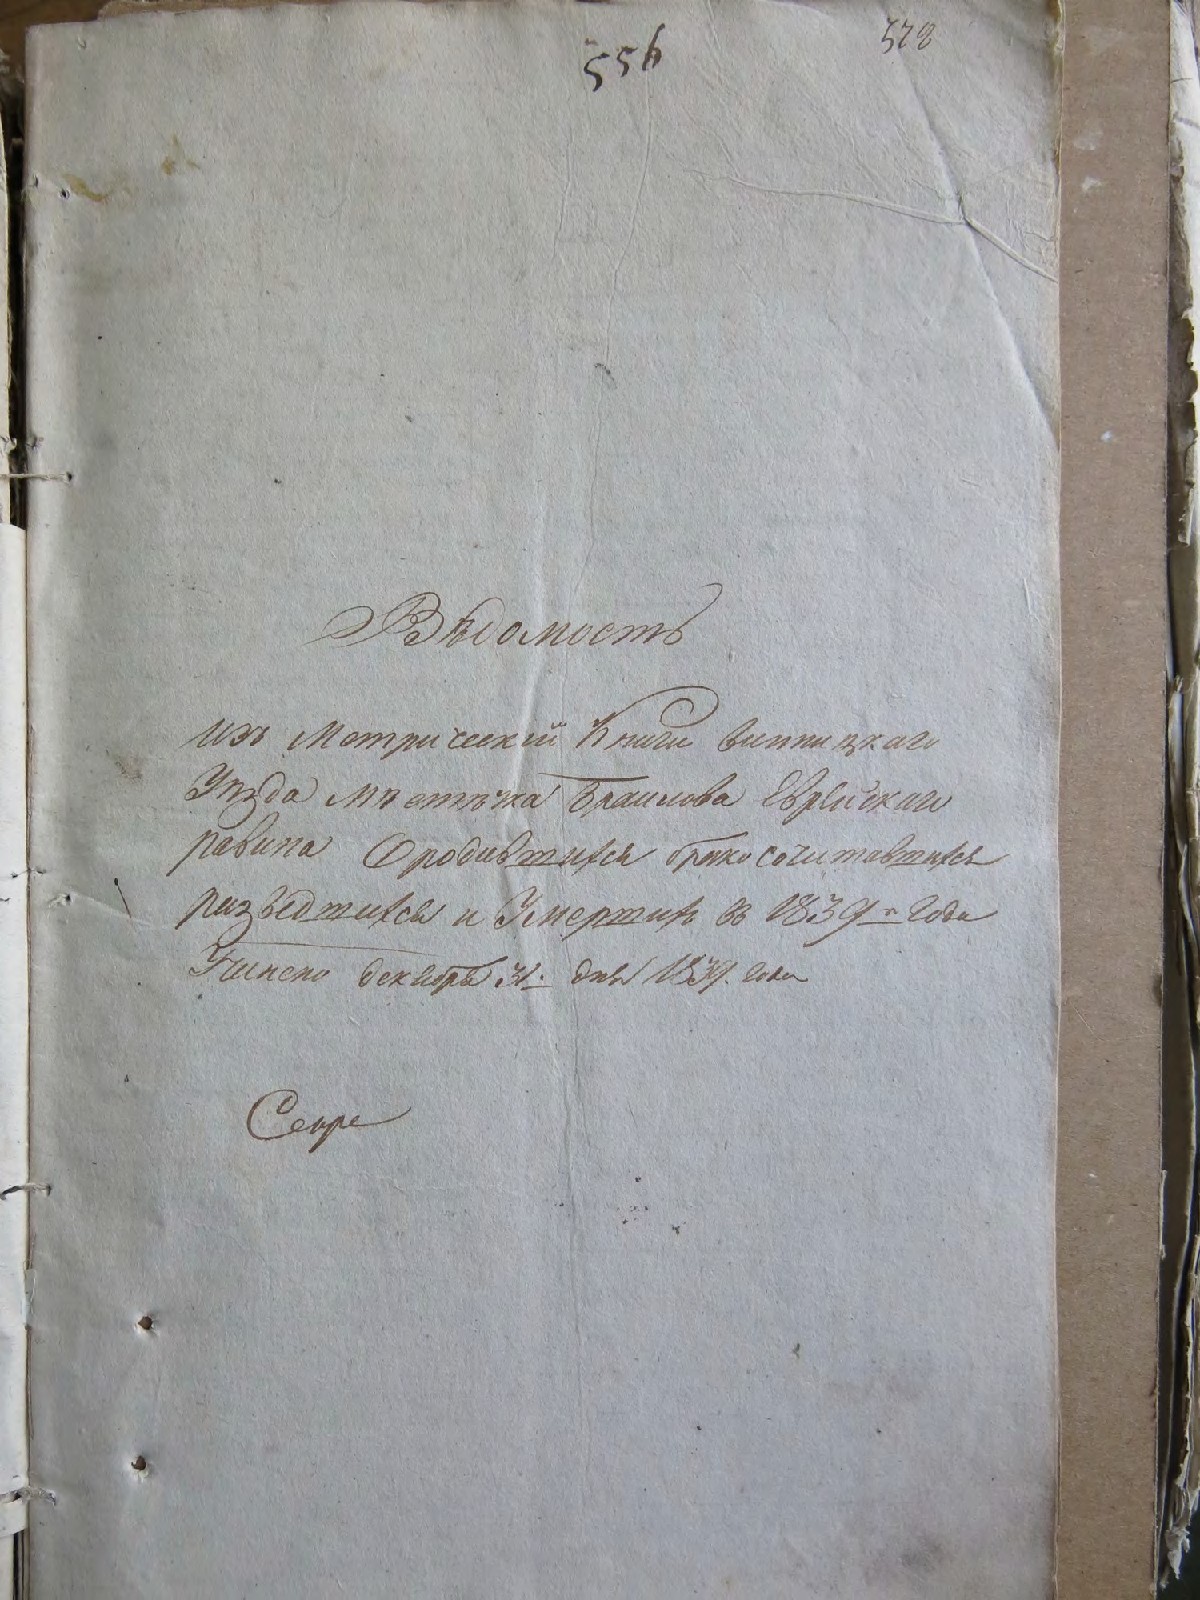 556
528
Вѣдомость
изъ Метрической Книги винницкаго
Уѣзда Мѣстечка Браилова Еврейскаго
равина О родившихся бракосочитавшихся
разведшихся и Умершихъ въ 1839 года
декабря 31 дня 1839 года